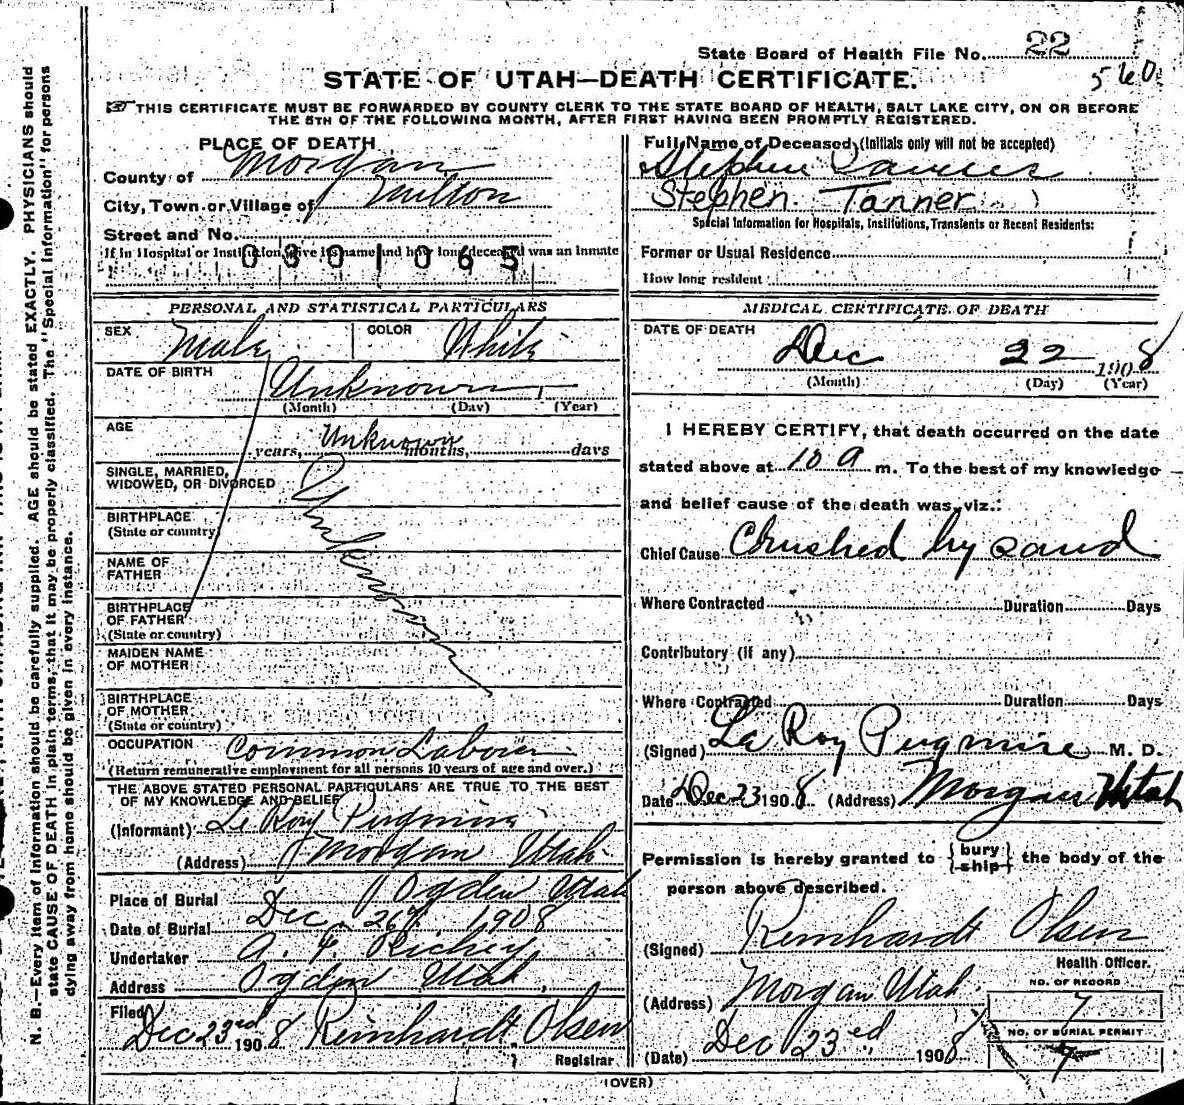 State Board of Health File No. 22
560
STATE OF UTAH—DEATH CERTIFICATE.
THIS CERTIFICATE MUST BE FORWARDED BY COUNTY CLERK TO THE STATE BOARD OF HEALTH, SALT LAKE CITY, ON OR BEFORE
THE 5TH OF THE FOLLOWING MONTH, AFTER FIRST HAVING BEEN PROMPTLY REGISTERED.
N. B.—Every item of information should be carefully supplied. AGE should be stated EXACTLY. PHYSICIANS should
state CAUSE OF DEATH in plain terms, that it may be properly classified. The "Special Information" for persons
dying away from home should be given in every instance.
PLACE OF DEATH
County of Morgan
City, Town or Village of Milton
Street and No.
If in Hospital or Institution, give its name and how long deceased was an Inmate
0301065
PERSONAL AND STATISTICAL PARTICULARS
SEX Male COLOR White
DATE OF BIRTH Unknown
(Month) (Day) (Year)
AGE Unknown
years, months, days
SINGLE, MARRIED,
WIDOWED, OR DIVORCED
Unknown
BIRTHPLACE
(State or country)
NAME OF
FATHER
BIRTHPLACE
OF FATHER
(State or country)
MAIDEN NAME
OF MOTHER
BIRTHPLACE
OF MOTHER
(State or country)
OCCUPATION Common Laborer
(Return remunerative employment for all persons 10 years of age and over.)
THE ABOVE STATED PERSONAL PARTICULARS ARE TRUE TO THE BEST
OF MY KNOWLEDGE AND BELIEF
(Informant) Le Roy Pugmire
(Address) Morgan Utah
Place of Burial Ogden Utah
Date of Burial Dec 26th 1908
Undertaker Richey
Address Ogden Utah
Filed
Dec 23rd 1908 Reinhardt Olsen
Registrar
Full Name of Deceased (Initials only will not be accepted)
Stephen Tanner
Stephen Tanner
Special Information for Hospitals, Institutions, Transients or Recent Residents:
Former or Usual Residence
How long resident
MEDICAL CERTIFICATE OF DEATH
DATE OF DEATH
Dec 22 1908
(Month) (Day) (Year)
I HEREBY CERTIFY, that death occurred on the date
stated above at 10 a m. To the best of my knowledge
and belief cause of the death was, viz.:
Chief Cause Crushed by sand
Where Contracted Duration Days
Contributory (if any)
Where Contracted Duration Days
(Signed) Le Roy Pugmire M. D.
Date Dec 23 1908 (Address) Morgan Utah
Permission is hereby granted to { bury ship } the body of the
person above described.
(Signed) Reinhardt Olsen
Health Officer.
(Address) Morgan Utah
NO. OF RECORD
7
NO. OF BURIAL PERMIT
7
(Date) Dec 23rd 1908
(OVER)